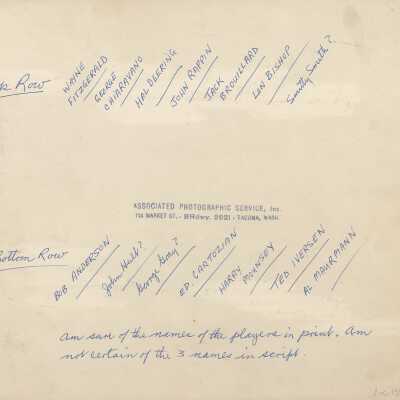 Row
WAYNE FITZGERALD
GEORGE CHIARAVANO
HAL DEERING
JOHN RAPPIN
JACK BROUILLARD
LEN BISHOP
Smitty Smith?
ASSOCIATED PHOTOGRAPHIC SERVICE, Inc.
MARKET ST. - BRdwy. 2021 - TACOMA, WASH.
Bottom Row
BOB ANDERSON
John Hult?
George Gray?
ED. CARTOZIAN
HARRY MOUNSEY
TED IVERSEN
AL MAURMANN
Am sure of the names of the players in print. Am
not certain of the 3 names in script.